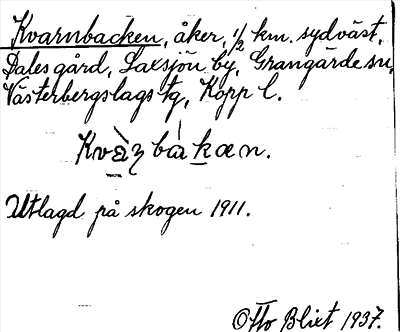 Kvarnbacken, åker, 1/2 km. sydväst,
Dalesgård, Laxsjön by, Grangärde sn,
Västerbergslags tg, Kopp l.
Utlagd på skogen 1911.
Otto Blixt 1937.